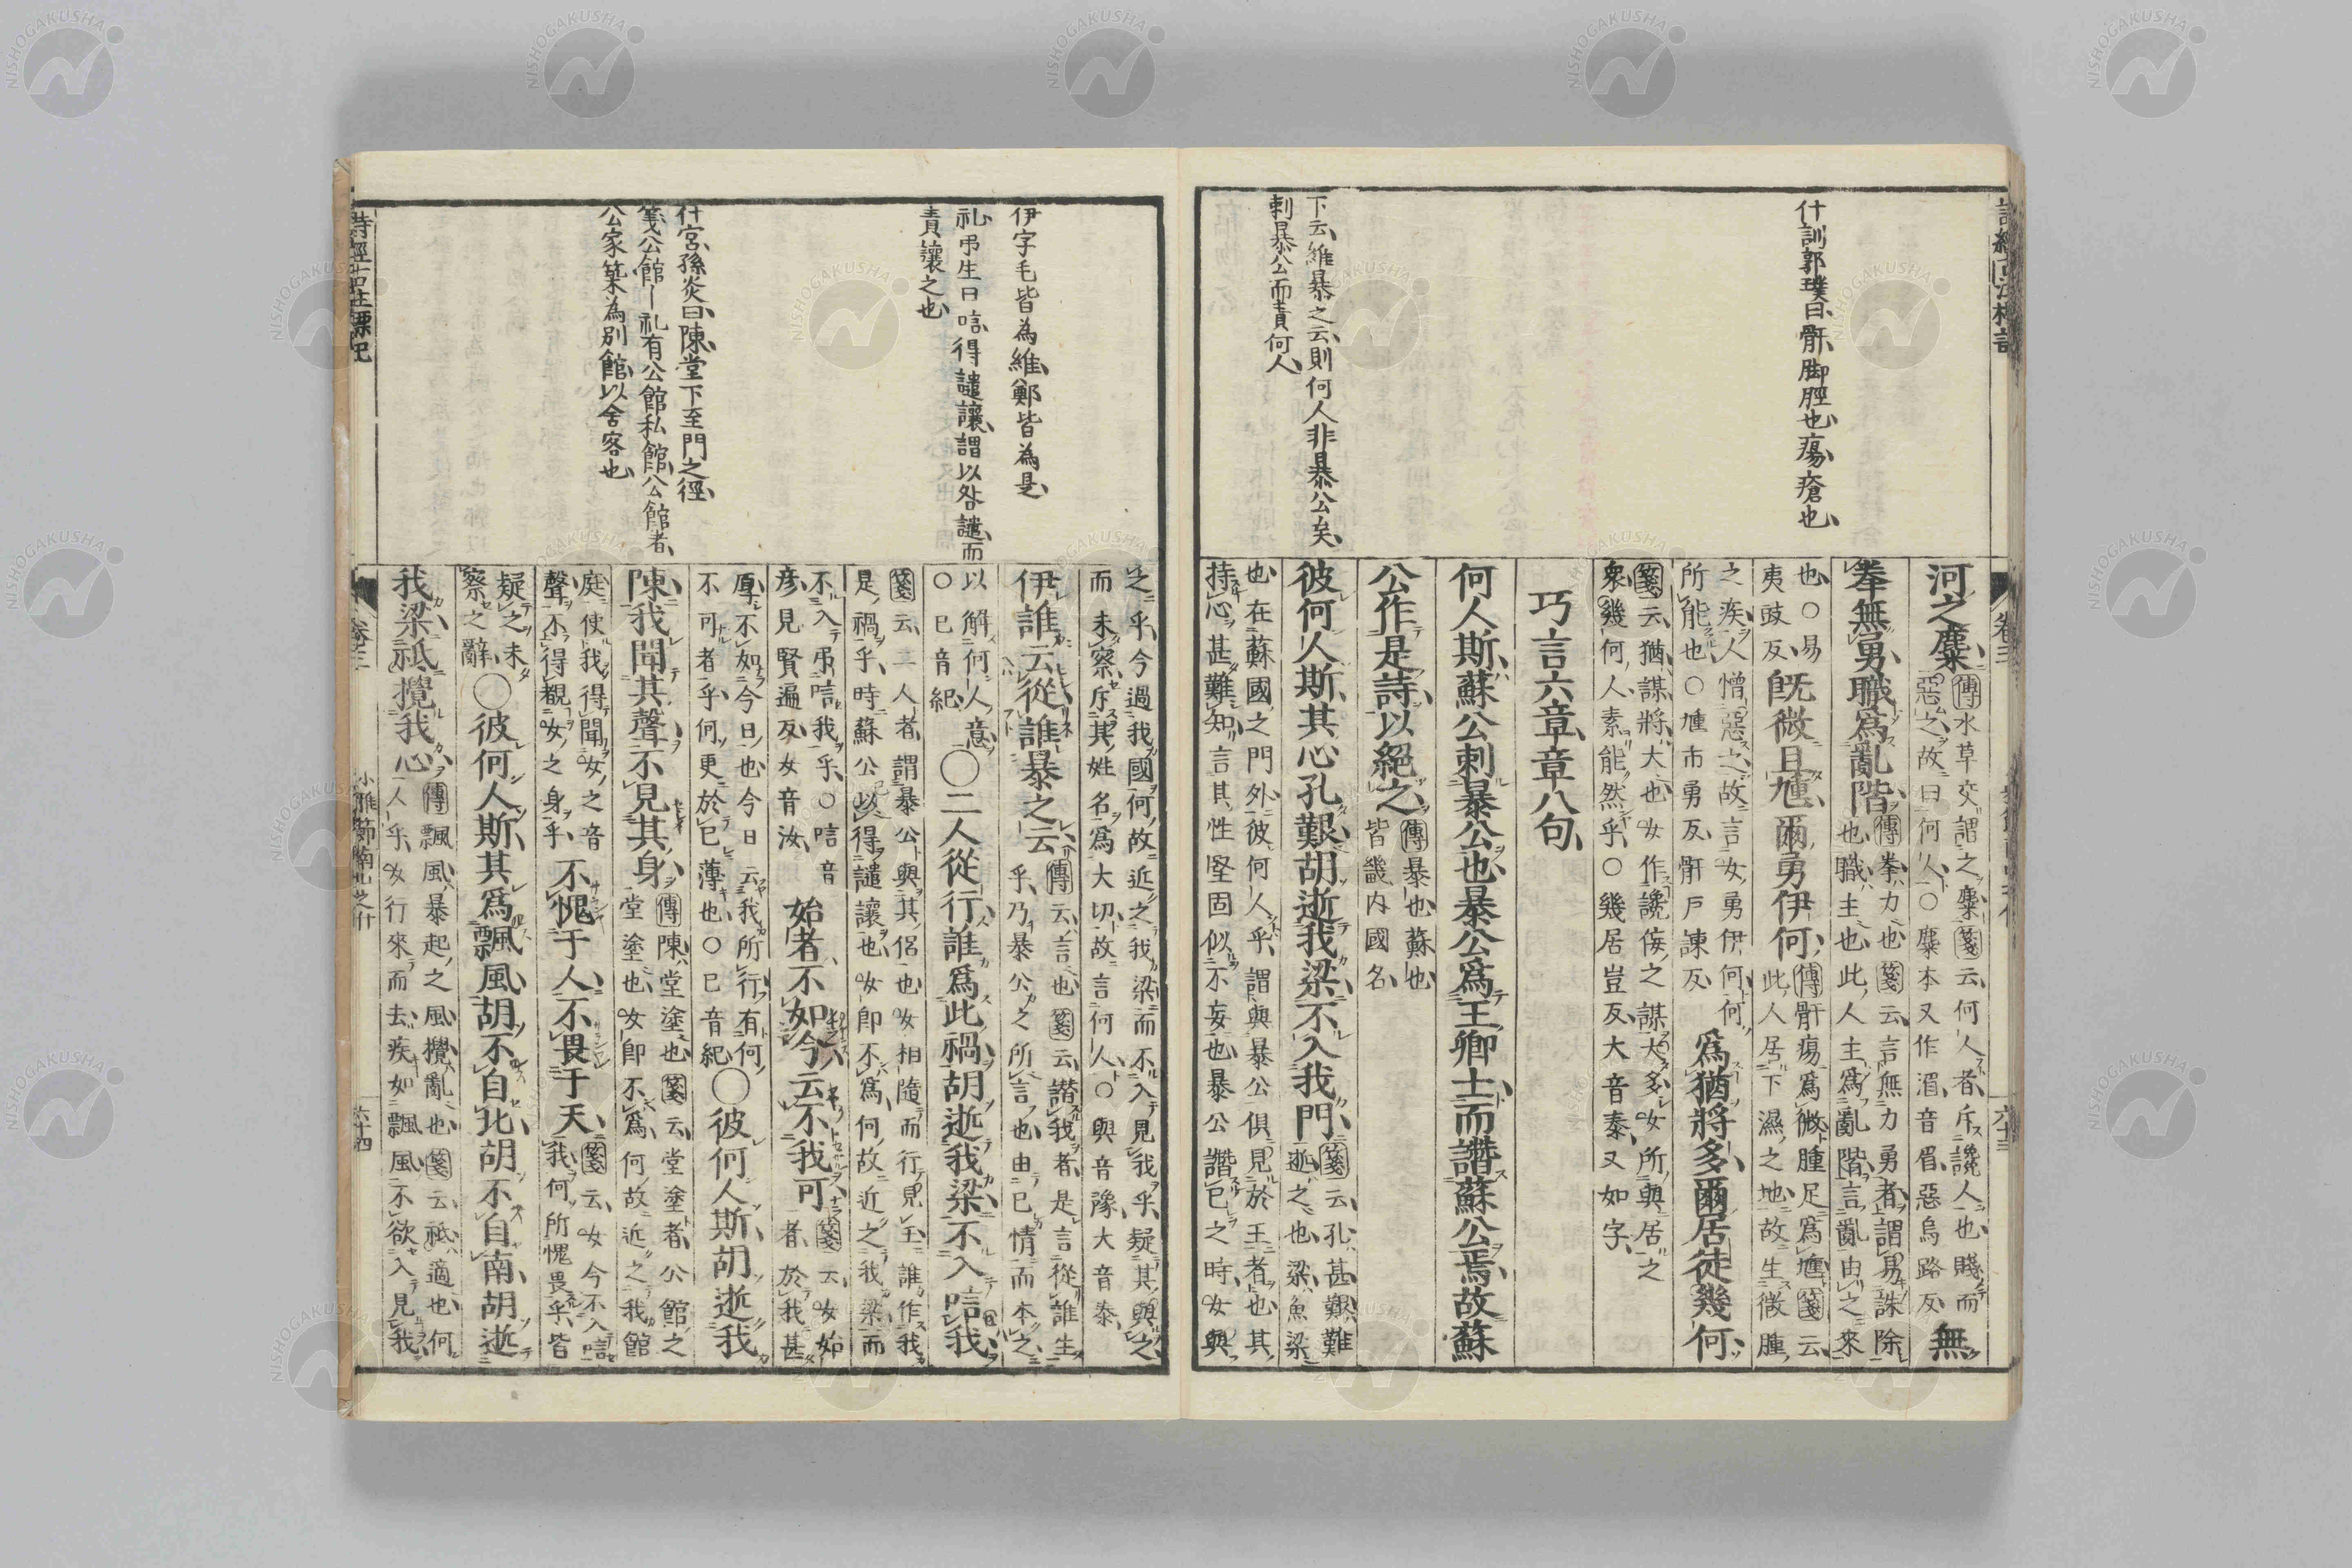 什訓郭璞曰、骭、脚脛也、瘍、瘡也、
下云、維暴之云、則何人非暴公矣、
刺暴公而責何人、
河之麋、傳水草交謂之麋、箋云、何人者、斥讒人也、賤而
惡之、故曰何人、○麋本又作湄、音眉、惡烏路反、無
拳無勇、職爲亂階、傳拳、力也、箋云、言無力勇者、謂易誅除
也、職、主也、此人主爲亂階、言亂由之來
也、○易
夷豉反、既微且尰、爾勇伊何、傳骭瘍爲微、腫足爲尰、箋云、
此人居下濕之地、故生微腫
之疾、人憎惡之、故言、女勇伊何、何
所能也、○尰市勇反、骭戸諫反、爲猶將多、爾居徒幾何、
箋云、猶、謀、將、大也、女作讒佞之謀大多、女所與居之
衆幾何人、素能然乎、○幾居豈反、大音泰、又如字、
巧言六章、章八句、
何人斯、蘇公刺暴公也、暴公爲王卿士、而譖蘇公焉、故蘇
公作是詩、以絕之、傳暴也、蘇也、
皆畿内國名、
彼何人斯、其心孔艱、胡逝我梁、不入我門、箋云、孔、甚、艱、難、
逝、之也、梁、魚梁
也、在蘇國之門外、彼何人乎、謂與暴公俱見於王者也、其
持心甚難知、言其性堅固、似不妄也、暴公譖己之時、女與
伊字毛皆為維、鄭皆為是、
礼弔生曰唁、得譴讓、謂以咎譴而
責讓之也、
什宮、孫炎曰、陳、堂下至門之徑、
箋公館｜礼有公館私館、公館者、
公家築為別館、以舍客也、
之乎、今過我國、何故近之我梁、而不入見我乎、疑其與之
而未察、斥其姓名、爲大切、故言何人、○與音豫、大音泰、
伊誰云從、誰暴之云、傳云、言也、箋云、譖我者、是言從誰生
乎、乃暴公之所言也、由己情而本之、
以解何人意、
○己音紀、○二人從行、誰爲此禍、胡逝我梁、不入唁我、
箋云、二人者、謂暴公與其侶也、女相隨而行見王、誰作我
是禍乎、時蘇公以得譴讓也、女即不爲、何故近之我梁、而
不入弔唁我乎、○唁音
彦、見賢遍反、女音汝、始者不如今、云不我可、箋云、女始
者、於我甚
厚、不如今日也、今日云我所行、有何
不可者乎、何更於己薄也、○己音紀、○彼何人斯、胡逝我
陳、我聞其聲、不見其身、傳陳、堂塗也、箋云、堂塗者、公館之
堂塗也、女即不爲、何故近之我館
庭、使我得聞女之音
聲、不得覩女之身乎、不愧于人、不畏于天、箋云、女今不入唁
我、何所愧畏乎、皆
疑之未
察之辭、○彼何人斯、其爲飄風、胡不自北、胡不自南、胡逝
我梁、祇攪我心、傳飄風、暴起之風、攪、亂也、箋云、祇、適也、何
人乎、女行來而去、疾如飄風、不欲入見我、
小雅節南山之什